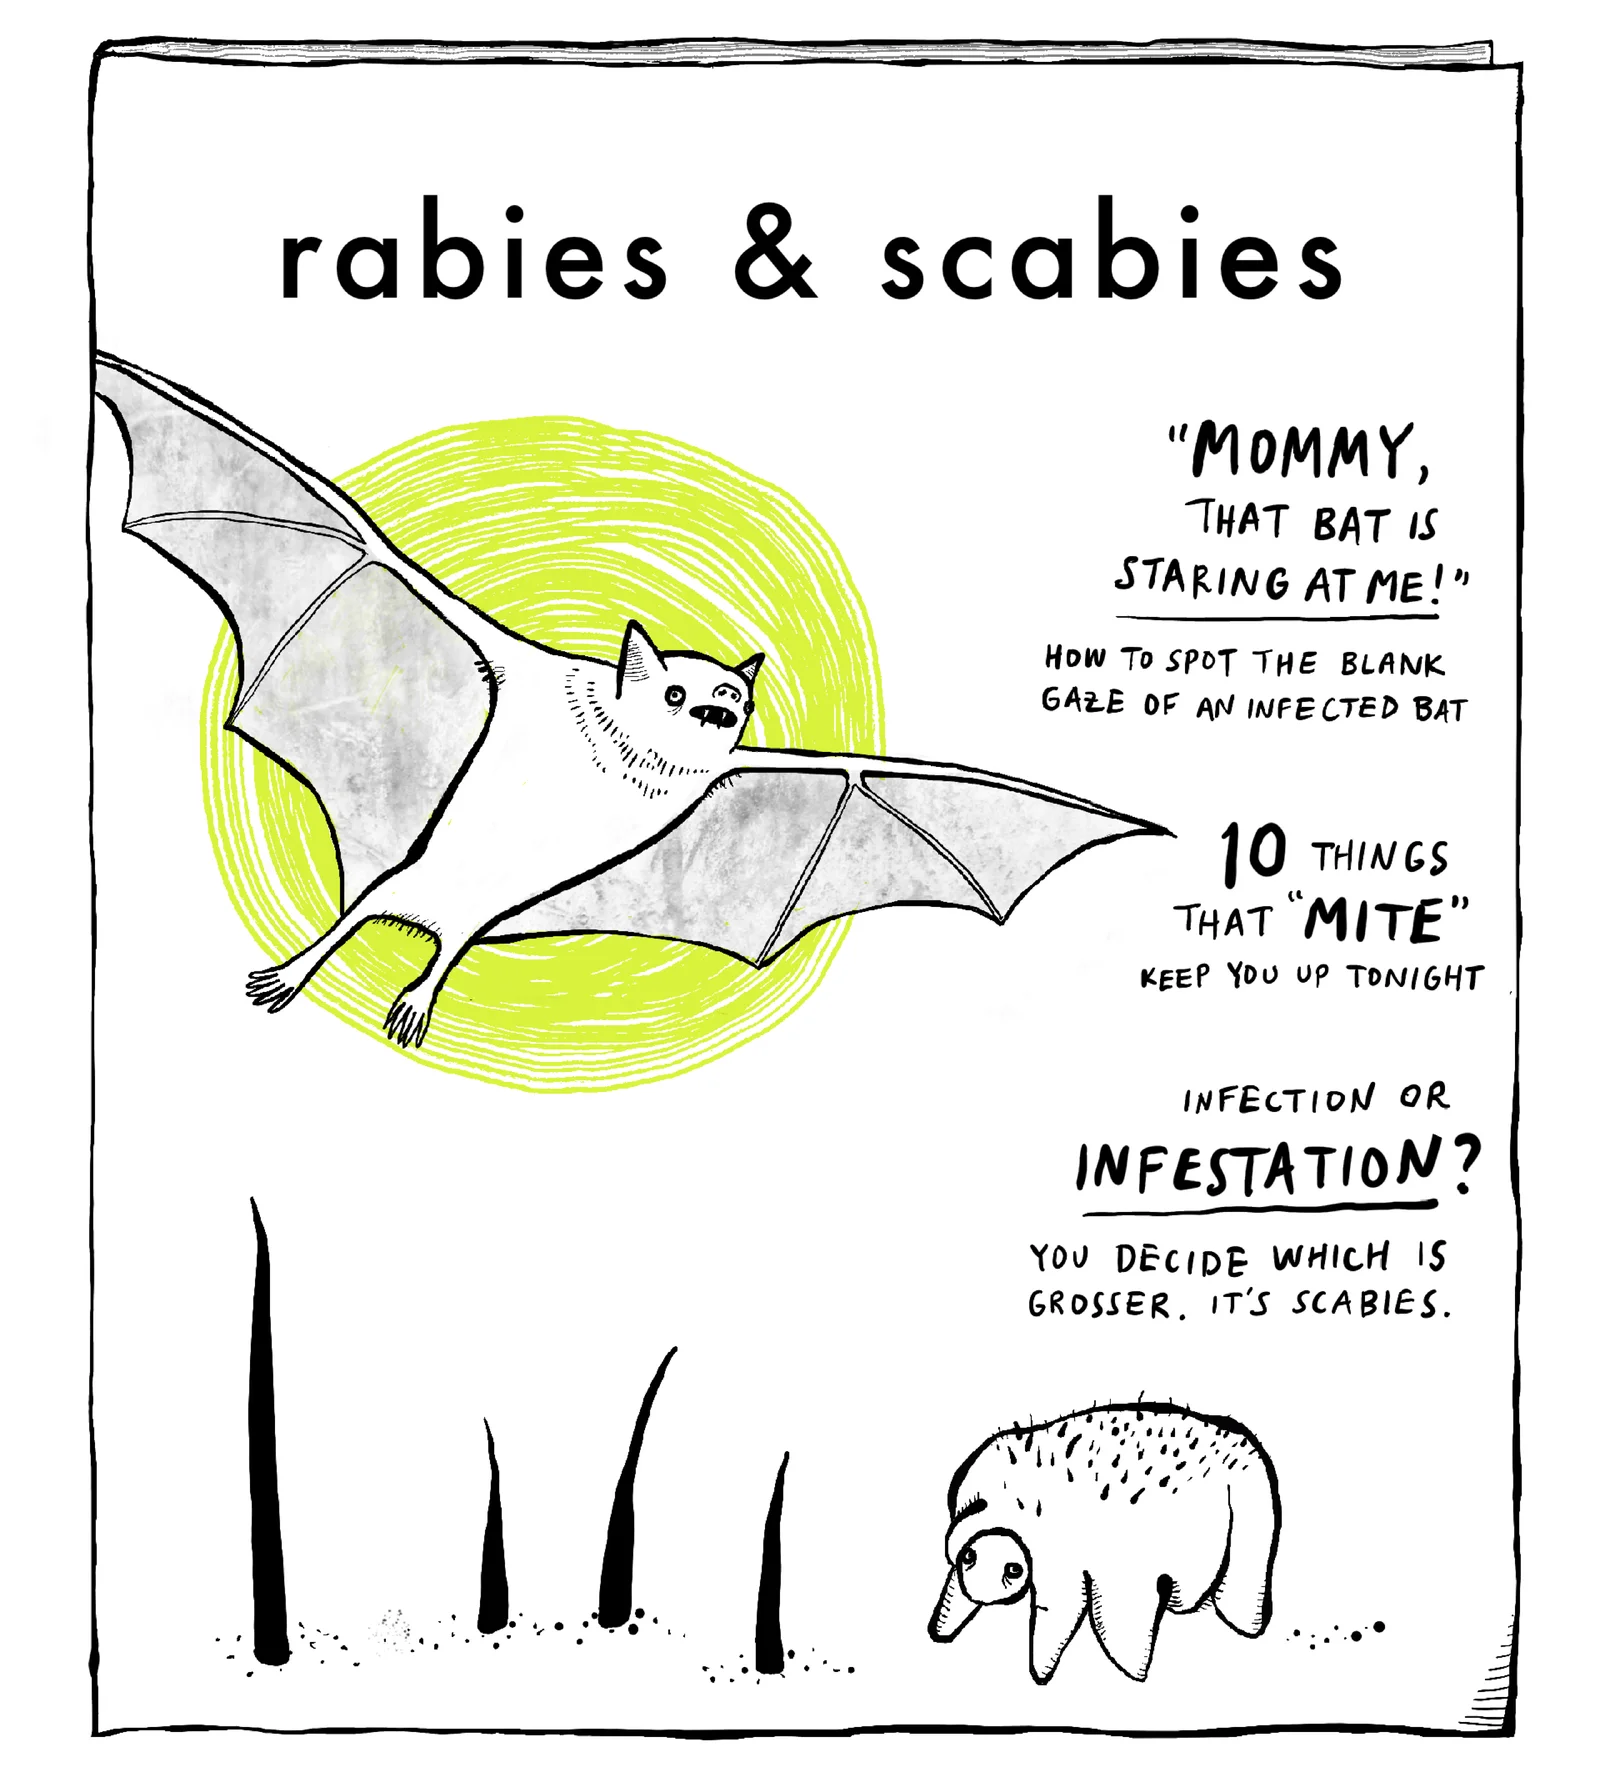 rabies & scabies
"MOMMY,
THAT BAT IS
STARING AT ME!"
HOW TO SPOT THE BLANK
GAZE OF AN INFECTED BAT
10 THINGS
THAT "MITE"
KEEP YOU UP TONIGHT
INFECTION OR
INFESTATION?
YOU DECIDE WHICH IS
GROSSER. IT'S SCABIES.